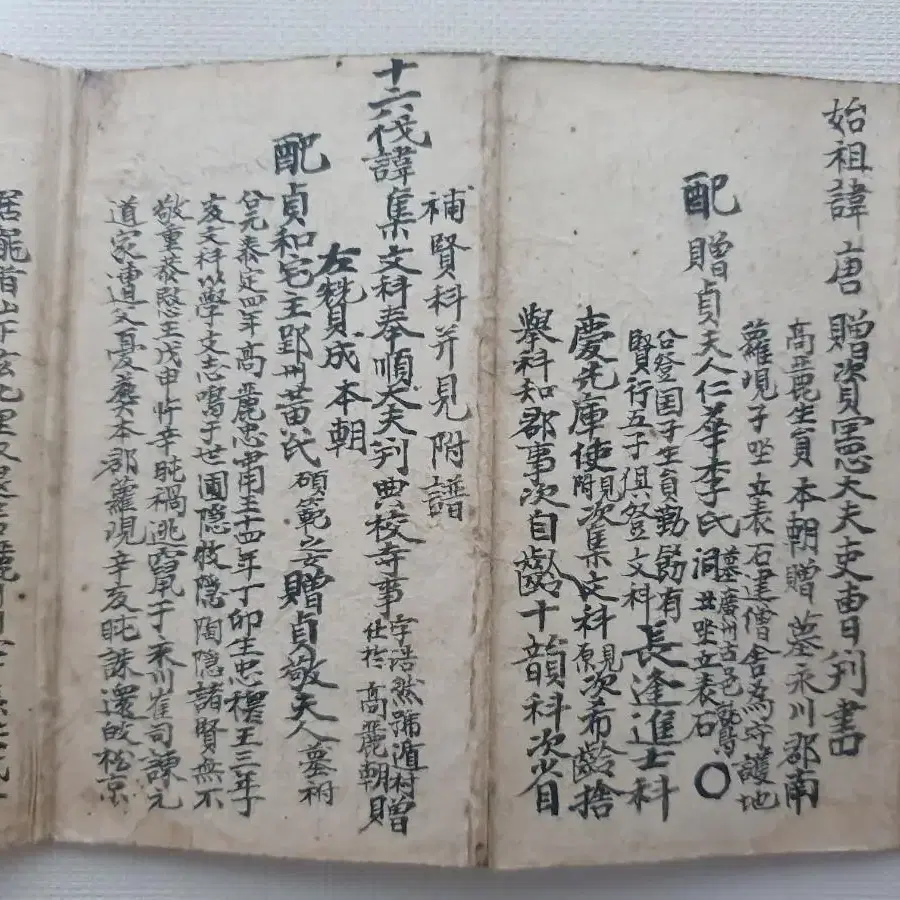 始祖諱唐贈資憲大夫吏曹判書
高麗生員本朝贈墓永川郡南
羅峴子坐立表石建僧舍爲守護地
配贈貞夫人仁華李氏墓廣州古邑鶩洞丑坐立表石〇
公登国子生員勤勵有
賢行五子俱登文科長逢進士科
慶先庫使見附次集文科見原次希齡捨
擧科知郡事次自齡十韻科次省自
補賢科并見附譜
十六代諱集文科奉順大夫判典校寺事字浩然號遁村贈仕於高麗朝贈
左贊成本朝
配貞和宅主郢州黃氏碩範之女贈貞敬夫人墓祔
公元泰定四年高麗忠肅王十四年丁卯生忠穆王三年丁
亥文科以學文志鳴于世圃隱牧隱陶隱諸賢無不
敬重恭愍王戊申忤辛旽禍逃竄于永川崔司諫元
道家遭父憂葬本郡羅峴辛亥旽誅還故松京